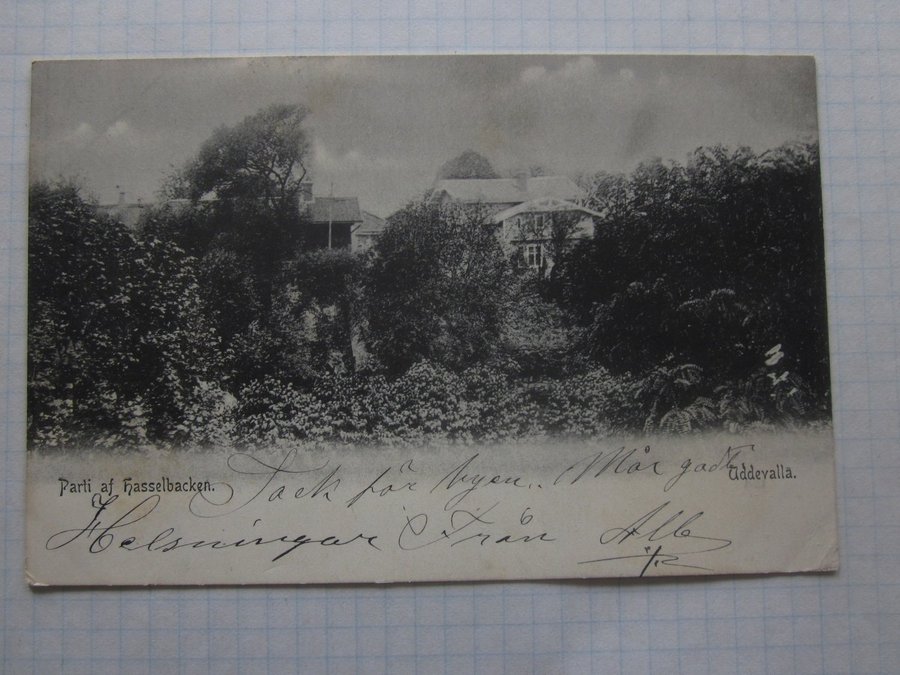 Parti af Hasselbacken.
Tack för vyen.. Mår godt
Uddevalla.
Helsningar Från